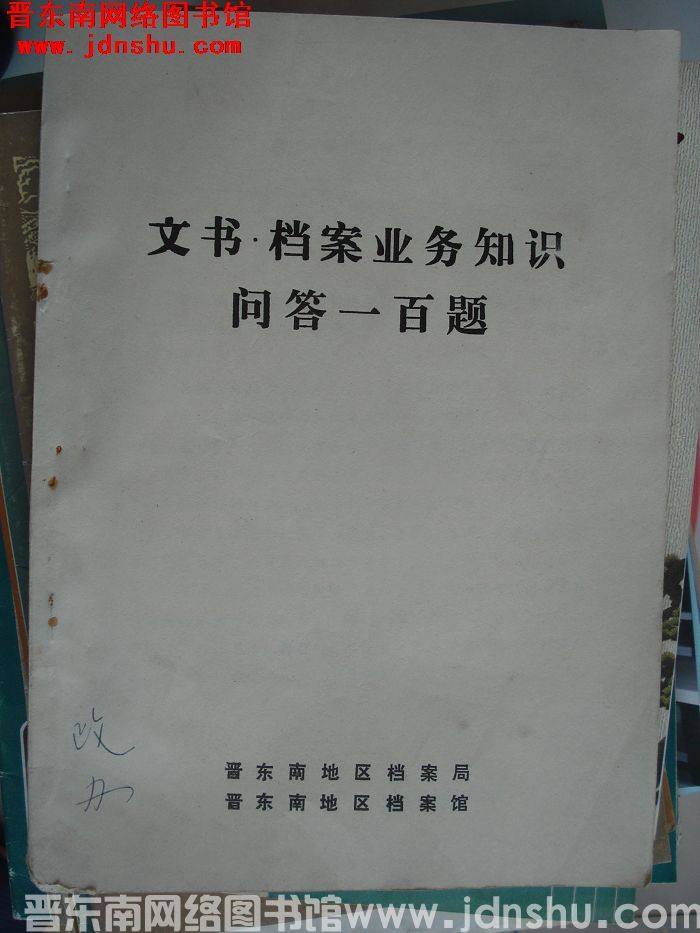 晋东南网络图书馆
www.jdnshu.com
文书·档案业务知识
问答一百题
政
办
晋东南地区档案局
晋东南地区档案馆
晋东南网络图书馆www.jdnshu.com